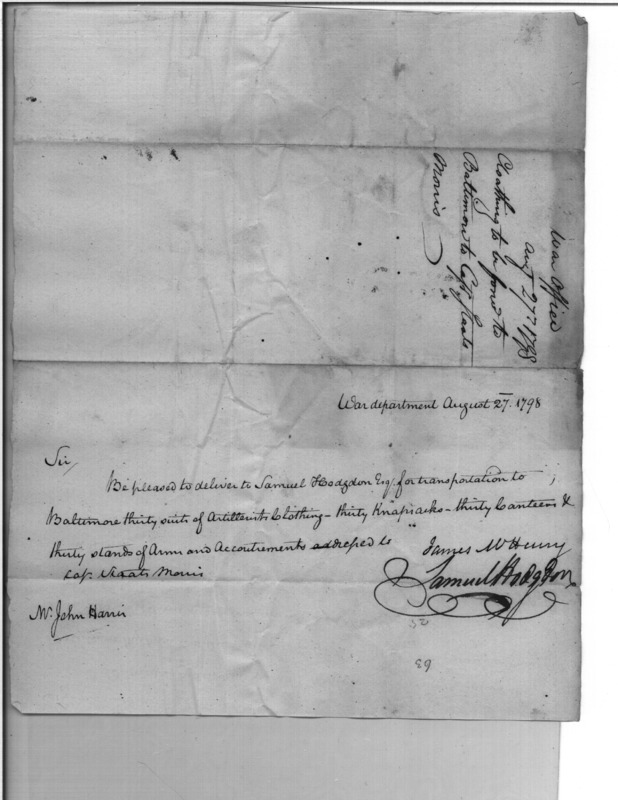 War Office
Augt 27th 1798
Cloathing to be forw'd to
Baltimore to Capt Staats
Morris
War department August 27. 1798
Sir,
Be pleased to deliver to Samuel Hodgdon Esqr. for transportation to
Baltimore thirty suits of Artillerists Clothing - thirty Knapsacks - thirty Canteens &
thirty stands of Arms and Accoutrements addressed to
Cap. Staats Morris
James McHenry
Samuel Hodgdon
Mr. John Harris
32
89